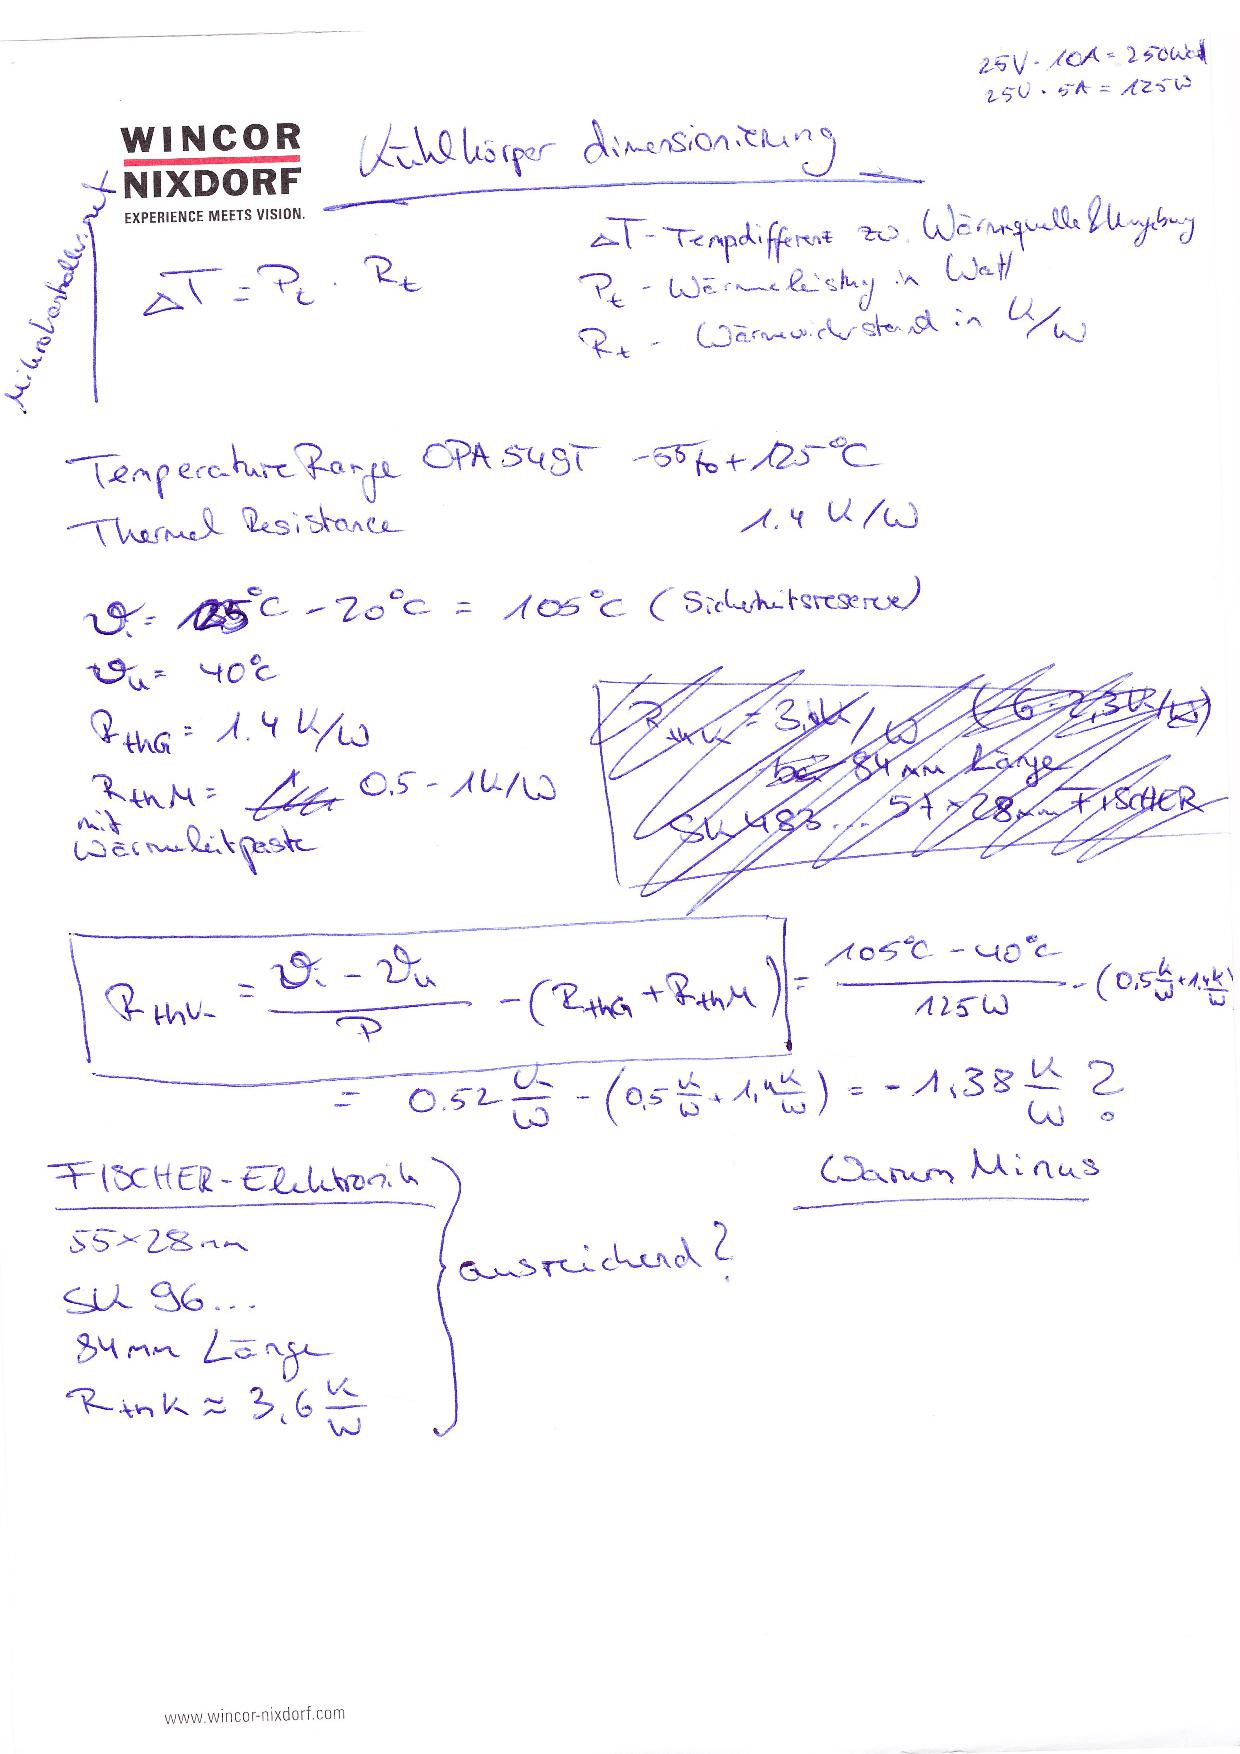 25V · 10A = 250Watt
25V · 5A = 125W
WINCOR
NIXDORF
EXPERIENCE MEETS VISION.
Kühlkörper dimensionierung
Mikrokontroller.net
ΔT = Pt · Rt
ΔT - Tempdifferent zw. Wärmquelle & Umgebung
Pt - Wärmeleistung in Watt
Rt - Wärmewiderstand in K/W
Temperature Range OPA549T -55 to +125°C
Thermal Resistance 1.4 K/W
ϑi = 125°C - 20°C = 105°C (Sicherheitsreserve)
ϑu = 40°C
RthG = 1.4 K/W
RthM = 0.5 - 1K/W
mit
Wärmeleitpaste
RthK = 3, K/W (6 - 2,3K/W)
84mm Länge
SK 483... 57 × 28mm FISCHER
RthK = (ϑi - ϑu)/P - (RthG + RthM) = (105°C - 40°C)/125W - (0,5 K/W + 1,4 K/W)
= 0.52 K/W - (0,5 K/W + 1,4 K/W) = -1,38 K/W ?
Warum Minus
FISCHER-Elektronik
55×28mm
SK 96...
84mm Länge
RthK ≈ 3,6 K/W
ausreichend?
www.wincor-nixdorf.com